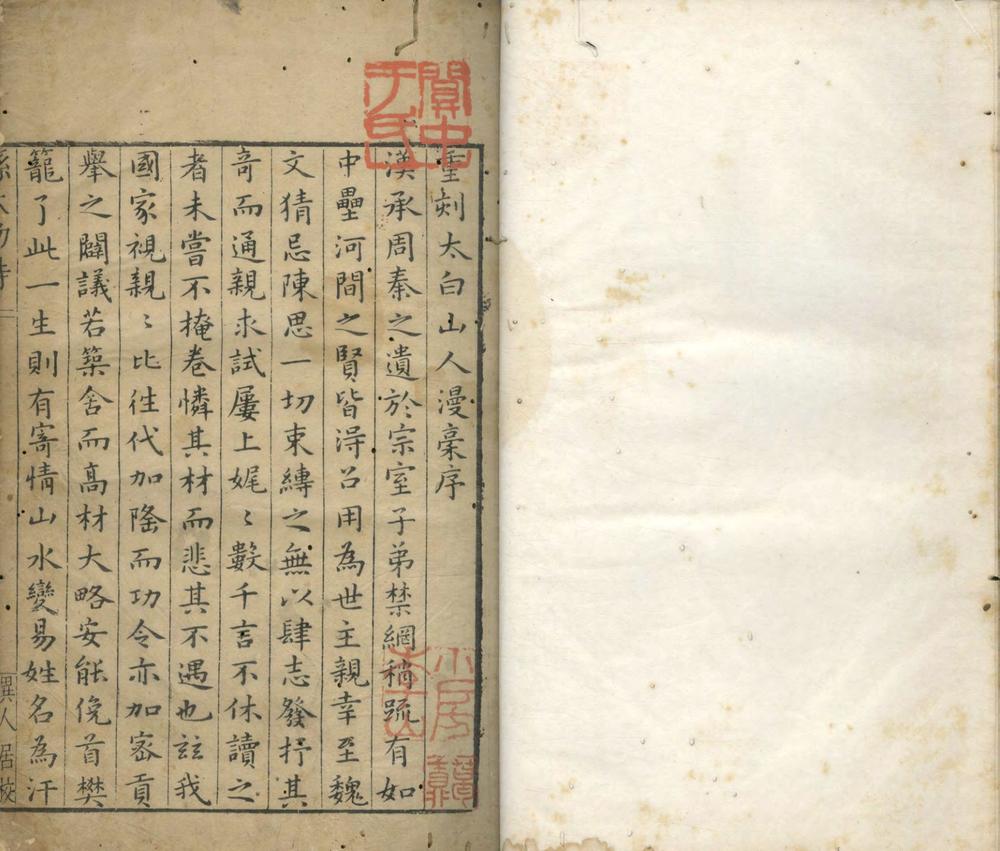 重刻太白山人漫稾序
漢承周秦之遺於宗室子弟禁綱稍疏有如
中壘河間之賢皆淂召用為世主親幸至魏
文猜忌陳思一切束縛之無以肆志發抒其
竒而通親求試屢上娓〻數千言不休讀之
者未嘗不掩卷憐其材而悲其不遇也玆我
國家視親〻比徃代加隆而功令亦加宻貢
舉之闢議若築舍而髙材大略安能俛首樊
籠了此一生則有寄情山水變易姓名為汗
聞中
于氏
異人居校